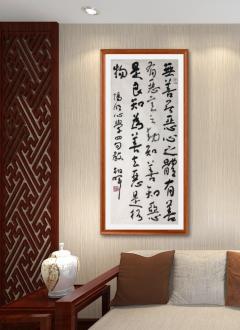 無善无惡心之體有善
有惡意之動知善知惡
是良知為善去惡是格
物
陽明心學四句教